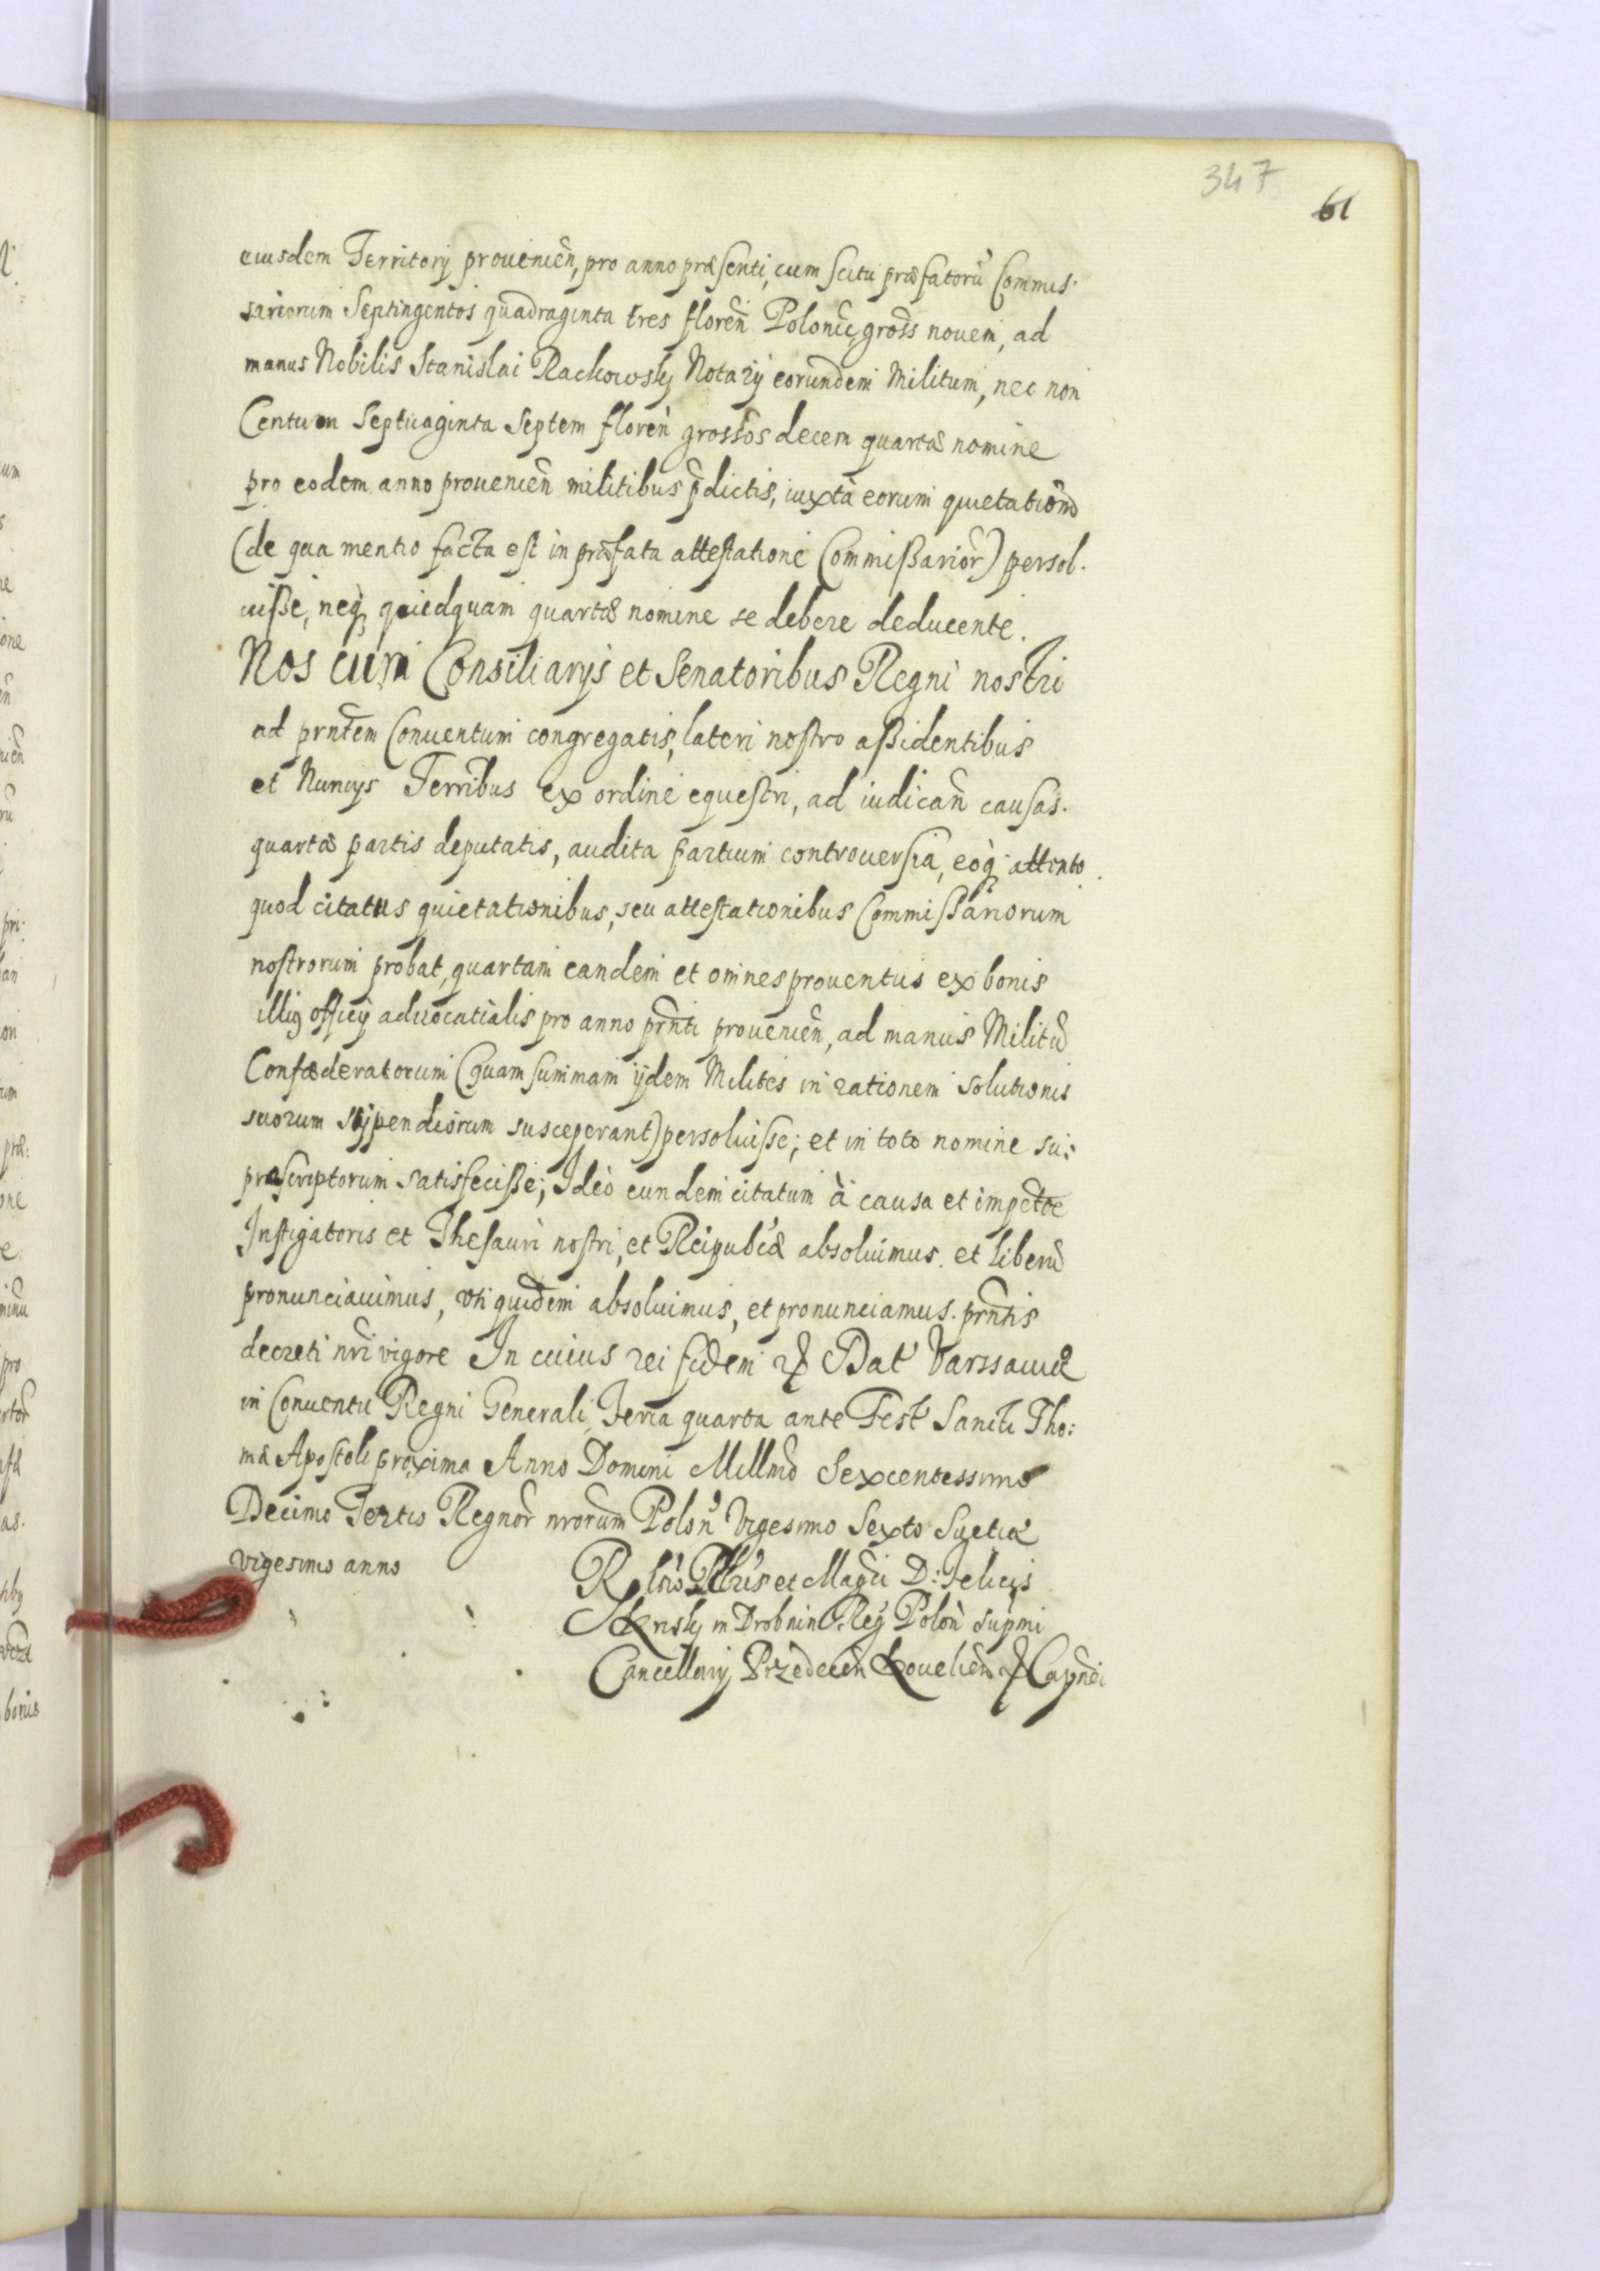 347
61
eiusdem Territorij prouenien̄, pro anno præsenti, cum scitu præfatorū Commis-
sariorum Septingentos quadraginta tres floren̄ Polonic̄, gross̄ nouem, ad
manus Nobilis Stanislai Rackowsky Notarÿ eorundem Militum, nec non
Centum Septuaginta Septem floren̄ grossos decem quartæ nomine
pro eodem anno prouenien̄ militibus p̄dictis, iuxtà eorum quietationē
(de qua mentio facta est in præfata attestatione Commißarior̄) persol-
uiße, neq̨ quidquam quartæ nomine se debere deducente.
Nos cum Consiliarijs et Senatoribus Regni nostri
ad prn̄tem Conuentum congregatis, lateri nostro aßidentibus
et Nuncijs Terrībus ex ordine equestri, ad iudican̄ causas
quartæ partis deputatis, audita partium controuersia, eoq̨ attento
quod citatus quietationibus, seu attestationibus Commißariorum
nostrorum probat, quartam eandem et omnes prouentus ex bonis
illius officij aduocatialis pro anno prn̄ti prouenien̄, ad manus Militū
Confœderatorum (quam summam ijdem Milites in rationem solutionis
suorum stipendiorum susceperant) persoluisse; et in toto nomine su:
præscriptorum satisfeciße; Ideò eundem citatum à causa et impet̄t̄e
Instigatoris et Thesauri nostri, et Reipub'cæ absoluimus et liberū
pronunciauimus, vti quidem absoluimus, et pronunciamus prn̄tis
decreti nr̄i vigore In cuius rei fidem &c Dat' Varssauiæ
in Conuentu Regni Generali, Feria quarta ante Fest' Sancti Tho:
mæ Apostoli proxima Anno Domini Millmō Sexcentessimo
Decimo Tertio Regnor̄ nr̄orum Polon̄ Vigesimo Sexto Suetiæ
vigesimo anno
R lt̄io Illr̄is et Maḡci D: Felicis
Krisky in Drobnin Reg' Polon̄ Supmi
Cancellarij Przedecen̄ Kouelien̄ &c Capn̄ei